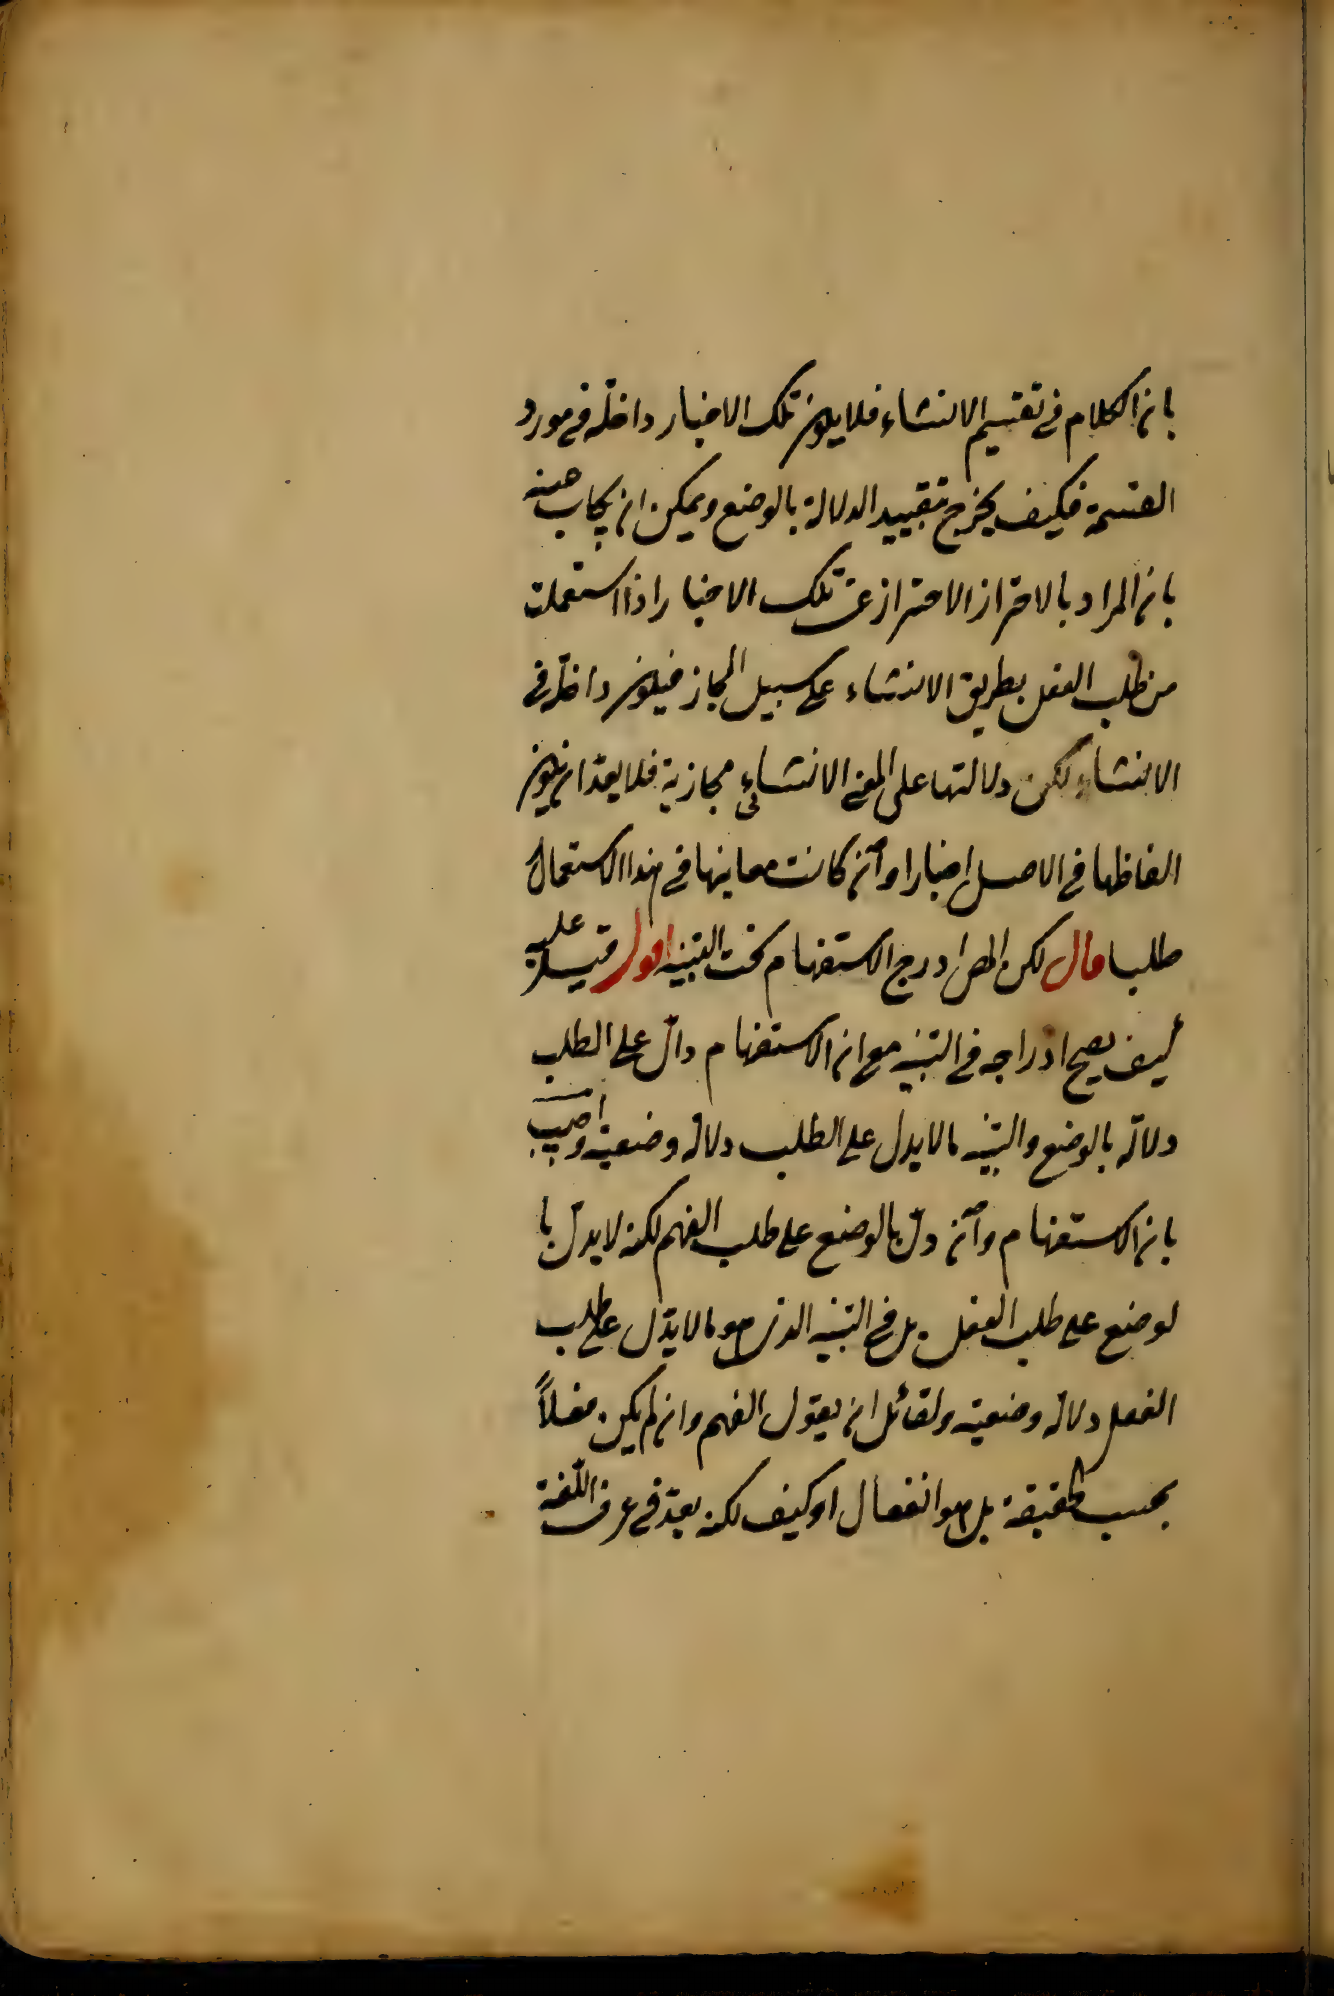 بان الكلام في تقسيم الانشاء فلا يكون تلك الاخبار داخلة في مورد
القسمة فكيف يخرج بتقييد الدلالة بالوضع ويمكن ان يجاب عنه
بان المراد بالاحتراز الاحتراز عن تلك الاخبار اذا استعملت
من طلب الفعل بطريق الانشاء على سبيل المجاز فيكون داخلة في
الانشاء لكن دلالتها على المعنى الانشائي مجازية فلا يعد ان يكون
الفاظها في الاصل اخبارا وان كانت معاينها في هذا الاستعمال
طلبا قال لكن المص ادرج الاستفهام تحت التنبيه اقول قيل عليه
كيف يصح ادراجه في التنبيه مع ان الاستفهام دالّ على الطلب
دلالة بالوضع والتنبيه ما لا يدل على الطلب دلالة وضعية واجيب
بان الاستفهام وان دلّ بالوضع على طلب الفهم لكنه لا يدلّ با
لوضع على طلب الفعل بل في التنبيه الذي هو ما لا يدّل على طلب
الفعل دلالة وضعية ولقائل ان يقول الفهم وان لم يكن فعلاً
بحسب الحقيقة بل هو انفعال او كيف لكنه يعدّ في عرف اللّغة